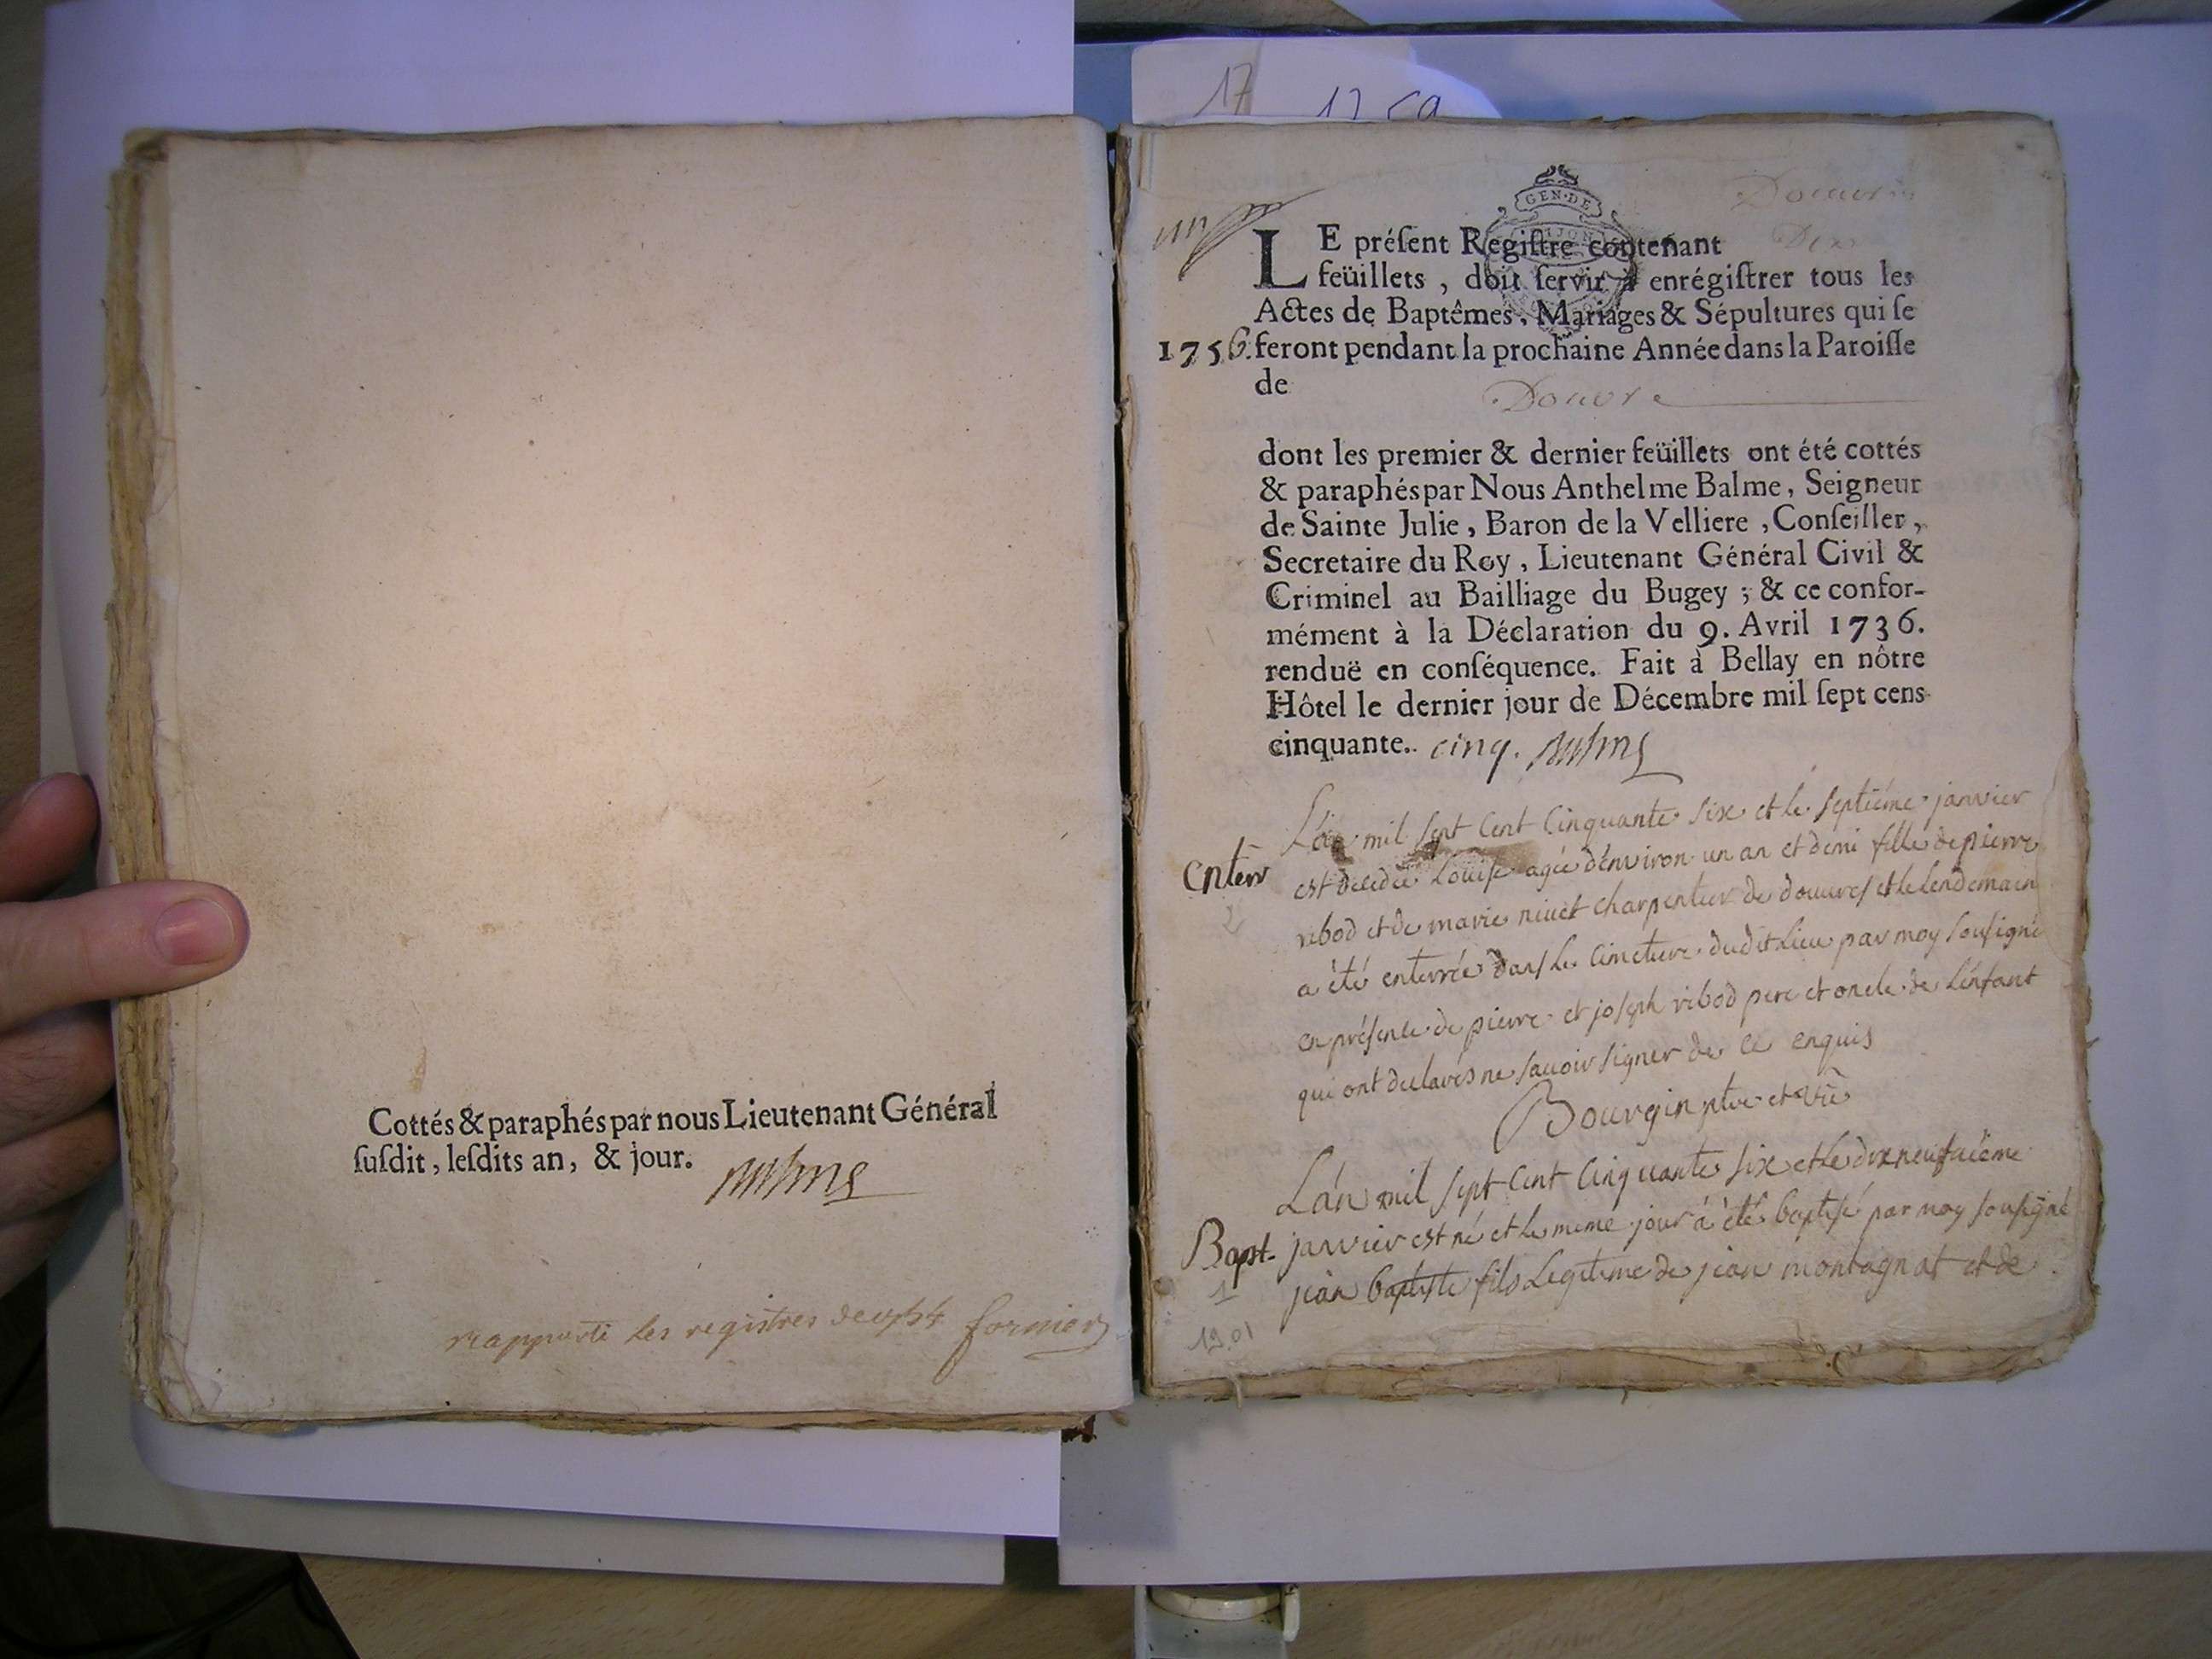 Cottés & paraphés par nous Lieutenant Général
ſuſdit, leſdits an, & jour.
les registres
17
GEN·DE
DIJON
LE préſent Regiſtre contenant Dix
feüillets, doit ſervir à enrégiſtrer tous les
Actes de Baptêmes, Mariages & Sépultures qui ſe
1756. feront pendant la prochaine Année dans la Paroiſſe
de Douvre
dont les premier & dernier feüillets ont été cottés
& paraphés par Nous Anthelme Balme, Seigneur
de Sainte Julie, Baron de la Velliere, Conſeiller,
Secretaire du Roy, Lieutenant Général Civil &
Criminel au Bailliage du Bugey; & ce confor-
mément à la Déclaration du 9. Avril 1736.
renduë en conſéquence. Fait à Bellay en nôtre
Hôtel le dernier jour de Décembre mil ſept cens
cinquante.. cinq. Balme
L'an mil sept cent cinquante six et le septiéme janvier
enterr est decedée Louise agée d'environ un an et demi fille de pierre
2
ribod et de marie niuet charpentier de douvres et le lendemain
a été enterrée dans le cimetiere dudit lieu par moy sousigné
en présence de pierre et joseph ribod pere et oncle de l'enfant
qui ont declarés ne sauoir signer de ce enquis
Bourgin ptre et vic
L'an mil sept cent cinquante six et le dixneufuiéme
Bapt. janvier est né et le meme jour a été baptisé par moy sousigné
1 jean baptiste fils legitime de jean montagnat et de
19.01